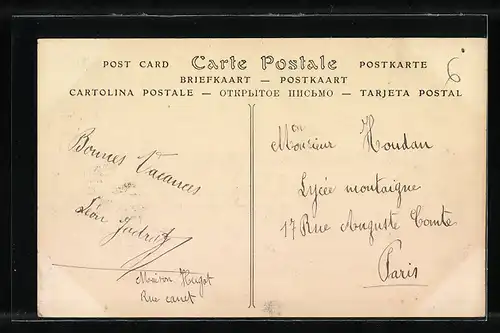 POST CARD Carte Postale POSTKARTE
BRIEFKAART — POSTKAART
CARTOLINA POSTALE — ОТКРЫТОЕ ПИСЬМО — TARJETA POSTAL
6
Bonnes Vacances
Léon
Maison Hugot
Rue canet
Monsieur Houdan
Lycée montaigne
17 Rue Auguste Comte
Paris